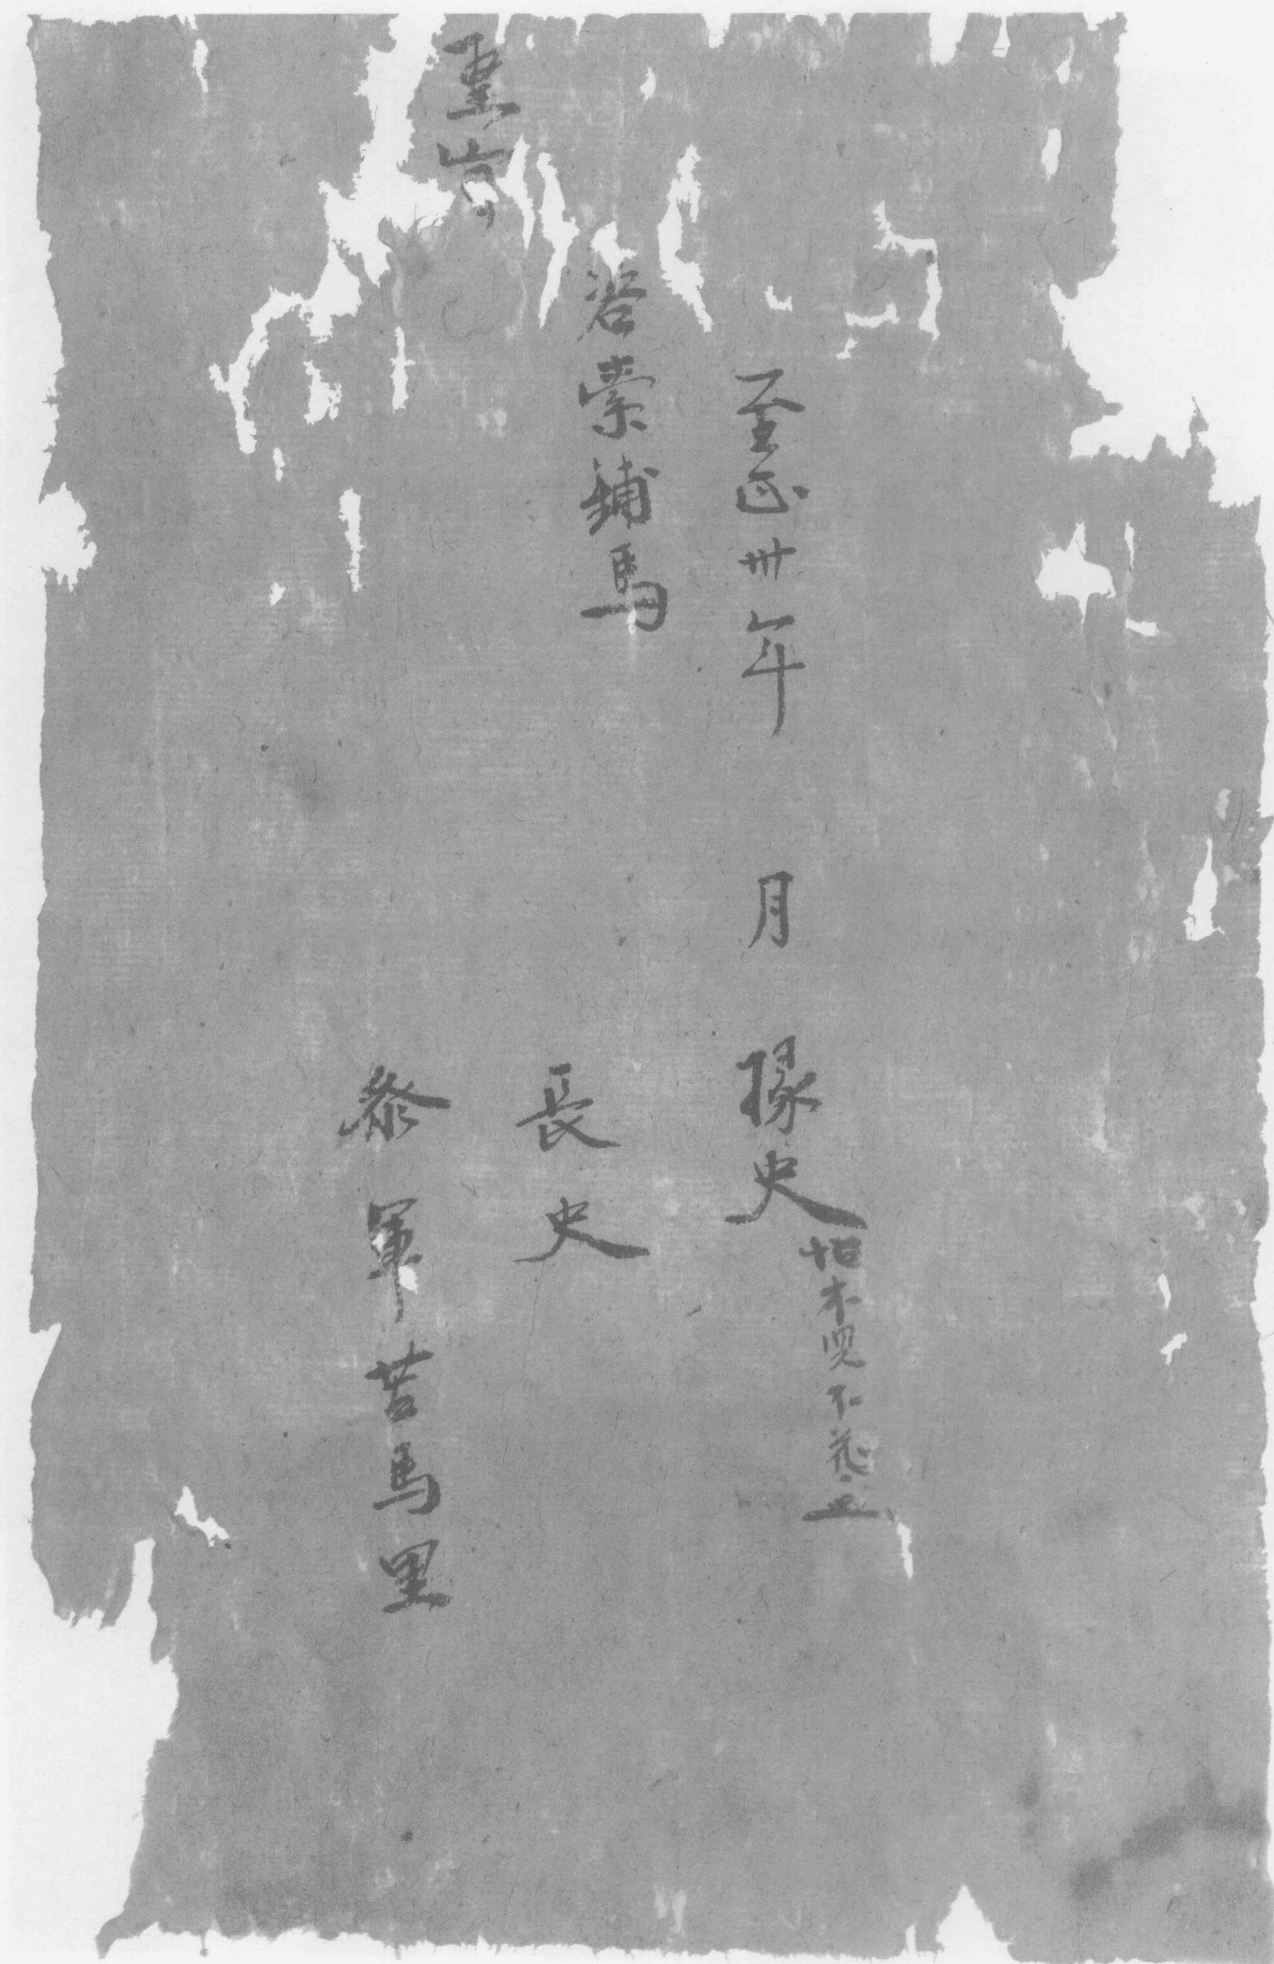 至正卅年　月　掾史怗木兒不花
咨索鋪馬
長史
參軍苦馬里